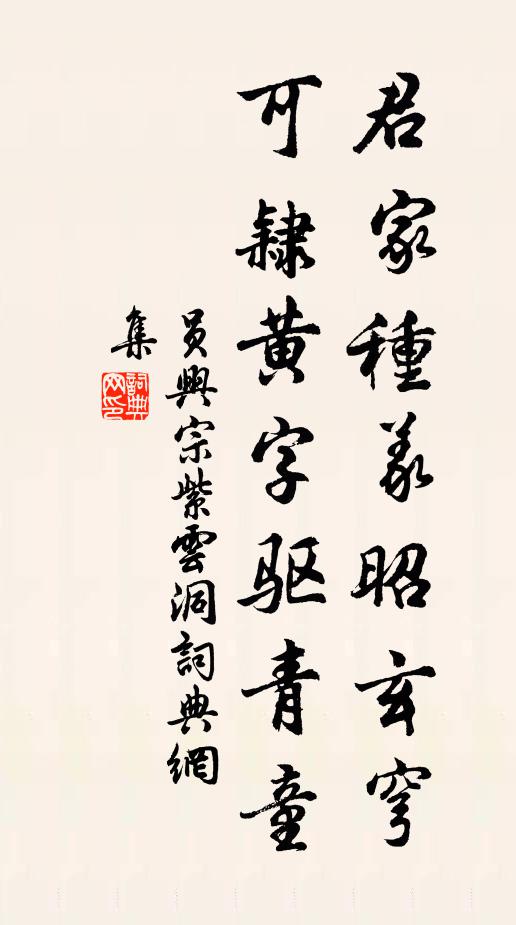 君家種義昭玄穹
可隸黄字驱青童
員興宗紫雲洞詞典網
集
詞典
网印